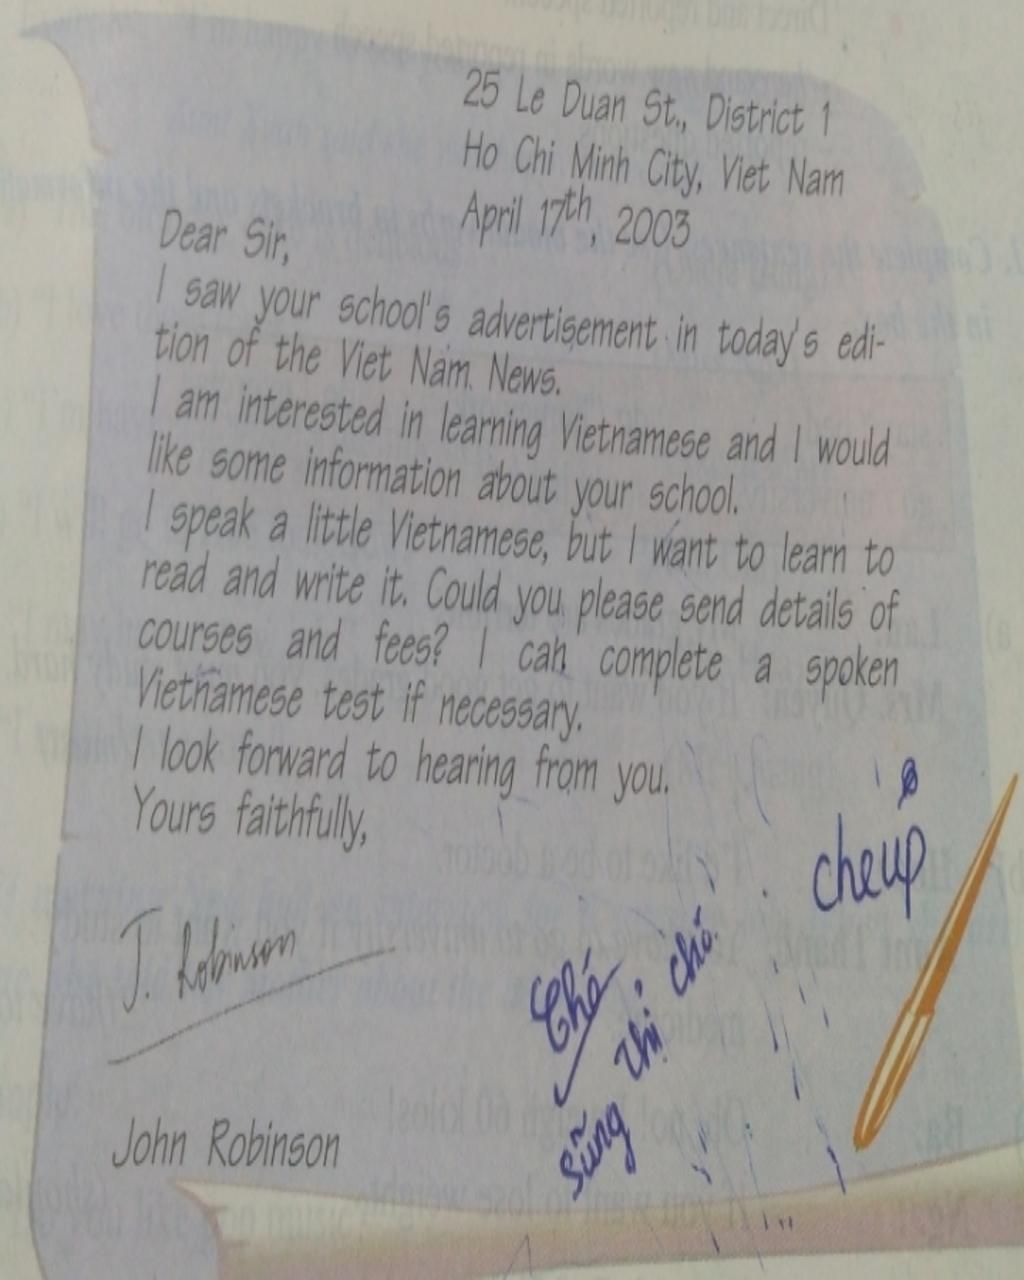 25 Le Duan St., District 1
Ho Chi Minh City, Viet Nam
April 17th, 2003
Dear Sir,
I saw your school's advertisement in today's edi-
tion of the Viet Nam News.
I am interested in learning Vietnamese and I would
like some information about your school.
I speak a little Vietnamese, but I want to learn to
read and write it. Could you please send details of
courses and fees? I can complete a spoken
Vietnamese test if necessary.
I look forward to hearing from you.
Yours faithfully,
J. Robinson
John Robinson
Chó
thị chó
sũng